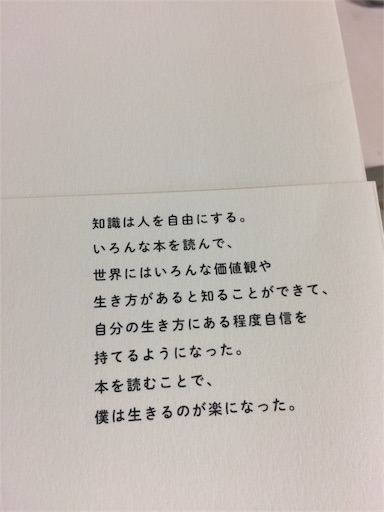 知識は人を自由にする。
いろんな本を読んで、
世界にはいろんな価値観や
生き方があると知ることができて、
自分の生き方にある程度自信を
持てるようになった。
本を読むことで、
僕は生きるのが楽になった。